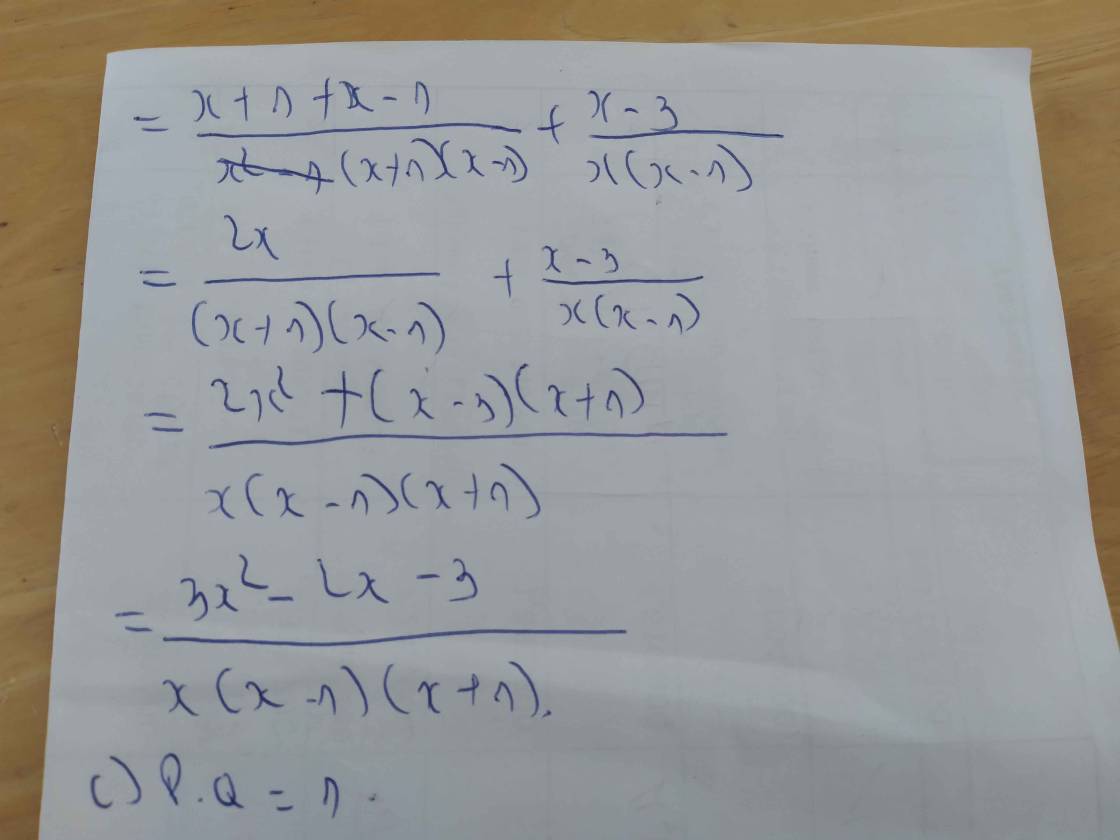 = \frac{x+1+x-1}{(x+1)(x-1)} + \frac{x-3}{x(x-1)}
= \frac{2x}{(x+1)(x-1)} + \frac{x-3}{x(x-1)}
= \frac{2x^2+(x-3)(x+1)}{x(x-1)(x+1)}
= \frac{3x^2-2x-3}{x(x-1)(x+1)}.
c) P.Q = 1.